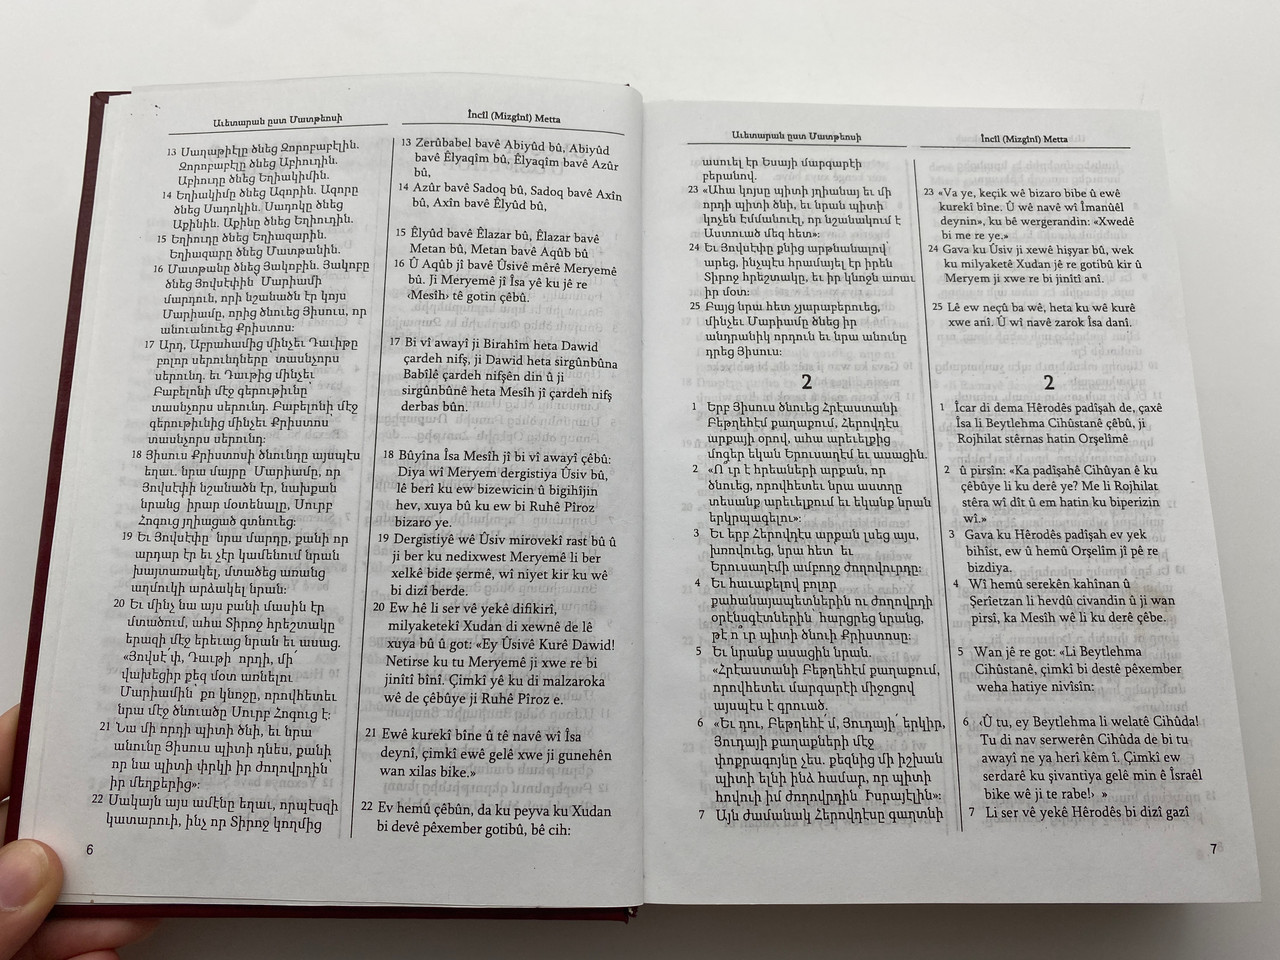 Աւետարան ըստ Մատթեոսի
13 Սաղաթիէլը ծնեց Զորոբաբէլին.
Զորոբաբէլը ծնեց Աբիուդին.
Աբիուդը ծնեց Եղիակիմին.
14 Եղիակիմը ծնեց Ազորին. Ազորը
ծնեց Սադոկին. Սադոկը ծնեց
Աքինին. Աքինը ծնեց Եղիուդին.
15 Եղիուդը ծնեց Եղիազարին.
Եղիազարը ծնեց Մատթանին.
16 Մատթանը ծնեց Յակոբին. Յակոբը
ծնեց Յովսէփին՝ Մարիամի
մարդուն, որի նշանածն էր կոյս
Մարիամը, որից ծնուեց Յիսուս, որ
անուանուեց Քրիստոս:
17 Արդ, Աբրահամից մինչեւ Դաւիթը
բոլոր սերունդները՝ տասնչորս
սերունդ. եւ Դաւթից մինչեւ
Բաբելոնի մէջ գերութիւնը՝
տասնչորս սերունդ. Բաբելոնի մէջ
գերութիւնից մինչեւ Քրիստոս՝
տասնչորս սերունդ:
18 Յիսուս Քրիստոսի ծնունդը այսպէս
եղաւ. նրա մայրը՝ Մարիամը, որ
Յովսէփի նշանածն էր, նախքան
նրանց՝ իրար մօտենալը, Սուրբ
Հոգուց յղիացած գտնուեց:
19 Եւ Յովսէփը՝ նրա մարդը, քանի որ
արդար էր եւ չէր կամենում նրան
խայտառակել, մտածեց առանց
աղմուկի արձակել նրան:
20 Եւ մինչ նա այս բանի մասին էր
մտածում, ահա Տիրոջ հրեշտակը
երազի մէջ երեւաց նրան եւ ասաց.
«Յովսէ՛փ, Դաւթի՛ որդի, մի՛
վախեցիր քեզ մօտ առնելու
Մարիամին՝ քո կնոջը, որովհետեւ
նրա մէջ ծնուածը Սուրբ Հոգուց է:
21 Նա մի որդի պիտի ծնի, եւ նրա
անունը Յիսուս պիտի դնես, քանի
որ նա պիտի փրկի իր ժողովրդին՝
իր մեղքերից»:
22 Սակայն այս ամէնը եղաւ, որպէսզի
կատարուի, ինչ որ Տիրոջ կողմից
6
Încîl (Mizgînî) Metta
13 Zerûbabel bavê Abiyûd bû, Abiyûd
bavê Êlyaqîm bû, Êlyaqîm bavê Azûr
bû,
14 Azûr bavê Sadoq bû, Sadoq bavê Axîn
bû, Axîn bavê Êlyûd bû,
15 Êlyûd bavê Êlazar bû, Êlazar bavê
Metan bû, Metan bavê Aqûb bû
16 Û Aqûb jî bavê Ûsivê mêrê Meryemê
bû. Ji Meryemê jî Îsa yê ku jê re
‹Mesîh› tê gotin çêbû.
17 Bi vî awayî ji Birahîm heta Dawid
çardeh nifş, ji Dawid heta sirgûnbûna
Babîlê çardeh nifşên din û ji
sirgûnbûnê heta Mesîh jî çardeh nifş
derbas bûn.
18 Bûyîna Îsa Mesîh jî bi vî awayî çêbû:
Diya wî Meryem dergistiya Ûsiv bû,
lê berî ku ew bizewicin û bigihîjin
hev, xuya bû ku ew bi Ruhê Pîroz
bizaro ye.
19 Dergistiyê wê Ûsiv mirovekî rast bû û
ji ber ku nedixwest Meryemê li ber
xelkê bide şermê, wî niyet kir ku wê
bi dizî berde.
20 Ew hê li ser vê yekê difikirî,
milyaketekî Xudan di xewnê de lê
xuya bû û got: «Ey Ûsivê Kurê Dawid!
Netirse ku tu Meryemê ji xwe re bi
jinîtî bînî. Çimkî yê ku di malzaroka
wê de çêbûye ji Ruhê Pîroz e.
21 Ewê kurekî bîne û tê navê wî Îsa
deynî, çimkî ewê gelê xwe ji gunehên
wan xilas bike.»
22 Ev hemû çêbûn, da ku peyva ku Xudan
bi devê pêxember gotibû, bê cih:
Աւետարան ըստ Մատթեոսի
ասուել էր Եսայի մարգարէի
բերանով.
23 «Ահա կոյսը պիտի յղիանայ եւ մի
որդի պիտի ծնի, եւ նրան պիտի
կոչեն Էմմանուէլ, որ նշանակում է
Աստուած մեզ հետ»:
24 Եւ Յովսէփը քնից արթնանալով՝
արեց, ինչպէս հրամայել էր իրեն
Տիրոջ հրեշտակը, եւ իր կնոջն առաւ
իր մօտ:
25 Բայց նրա հետ չյարաբերուեց,
մինչեւ Մարիամը ծնեց իր
անդրանիկ որդուն եւ նրա անունը
դրեց Յիսուս:
2
1 Երբ Յիսուս ծնուեց Հրէաստանի
Բեթղեհէմ քաղաքում, Հերովդէս
արքայի օրով, ահա արեւելքից
մոգեր եկան Երուսաղէմ եւ ասացին.
2 «Ո՞ւր է հրեաների արքան, որ
ծնուեց, որովհետեւ նրա աստղը
տեսանք արեւելքում եւ եկանք նրան
երկրպագելու»:
3 Եւ երբ Հերովդէս արքան լսեց այս,
խռովուեց, նրա հետ՝ եւ
Երուսաղէմի ամբողջ ժողովուրդը:
4 Եւ հաւաքելով բոլոր
քահանայապետներին ու ժողովրդի
օրէնսգէտներին՝ հարցրեց նրանց,
թէ ո՞ւր պիտի ծնուի Քրիստոսը:
5 Եւ նրանք ասացին նրան.
«Հրէաստանի Բեթղեհէմ քաղաքում,
որովհետեւ մարգարէի միջոցով
այսպէս է գրուած.
6 «Եւ դու, Բեթղեհէ՛մ, Յուդայի՛ երկիր,
Յուդայի քաղաքների մէջ
փոքրագոյնը չես. քեզնից մի իշխան
պիտի ելնի ինձ համար, որ պիտի
հովուի իմ ժողովրդին՝ Իսրայէլին»:
7 Այն ժամանակ Հերովդէսը գաղտնի
Încîl (Mizgînî) Metta
23 «Va ye, keçik wê bizaro bibe û ewê
kurekî bîne. Û wê navê wî Îmanûêl
deynin», ku bê wergerandin: «Xwedê
bi me re ye.»
24 Gava ku Ûsiv ji xewê hişyar bû, wek
ku milyaketê Xudan jê re gotibû kir û
Meryem ji xwe re bi jinîtî anî.
25 Lê ew neçû ba wê, heta ku wê kurê
xwe anî. Û wî navê zarok Îsa danî.
2
1 Îcar di dema Hêrodês padîşah de, çaxê
Îsa li Beytlehma Cihûstanê çêbû, ji
Rojhilat stêrnas hatin Orşelîmê
2 û pirsîn: «Ka padîşahê Cihûyan ê ku
çêbûye li ku derê ye? Me li Rojhilat
stêra wî dît û em hatin ku biperizin
wî.»
3 Gava ku Hêrodês padîşah ev yek
bihîst, ew û hemû Orşelîm jî pê re
bizdiya.
4 Wî hemû serekên kahînan û
Şerîetzan li hevdû civandin û ji wan
pirsî, ka Mesîh wê li ku derê çêbe.
5 Wan jê re got: «Li Beytlehma
Cihûstanê, çimkî bi destê pêxember
weha hatiye nivîsîn:
6 ‹Û tu, ey Beytlehma li welatê Cihûda!
Tu di nav serwerên Cihûda de bi tu
awayî ne ya herî kêm î. Çimkî ew
serdarê ku şivantiya gelê min ê Îsraêl
bike wê ji te rabe!› »
7 Li ser vê yekê Hêrodês bi dizî gazî
7